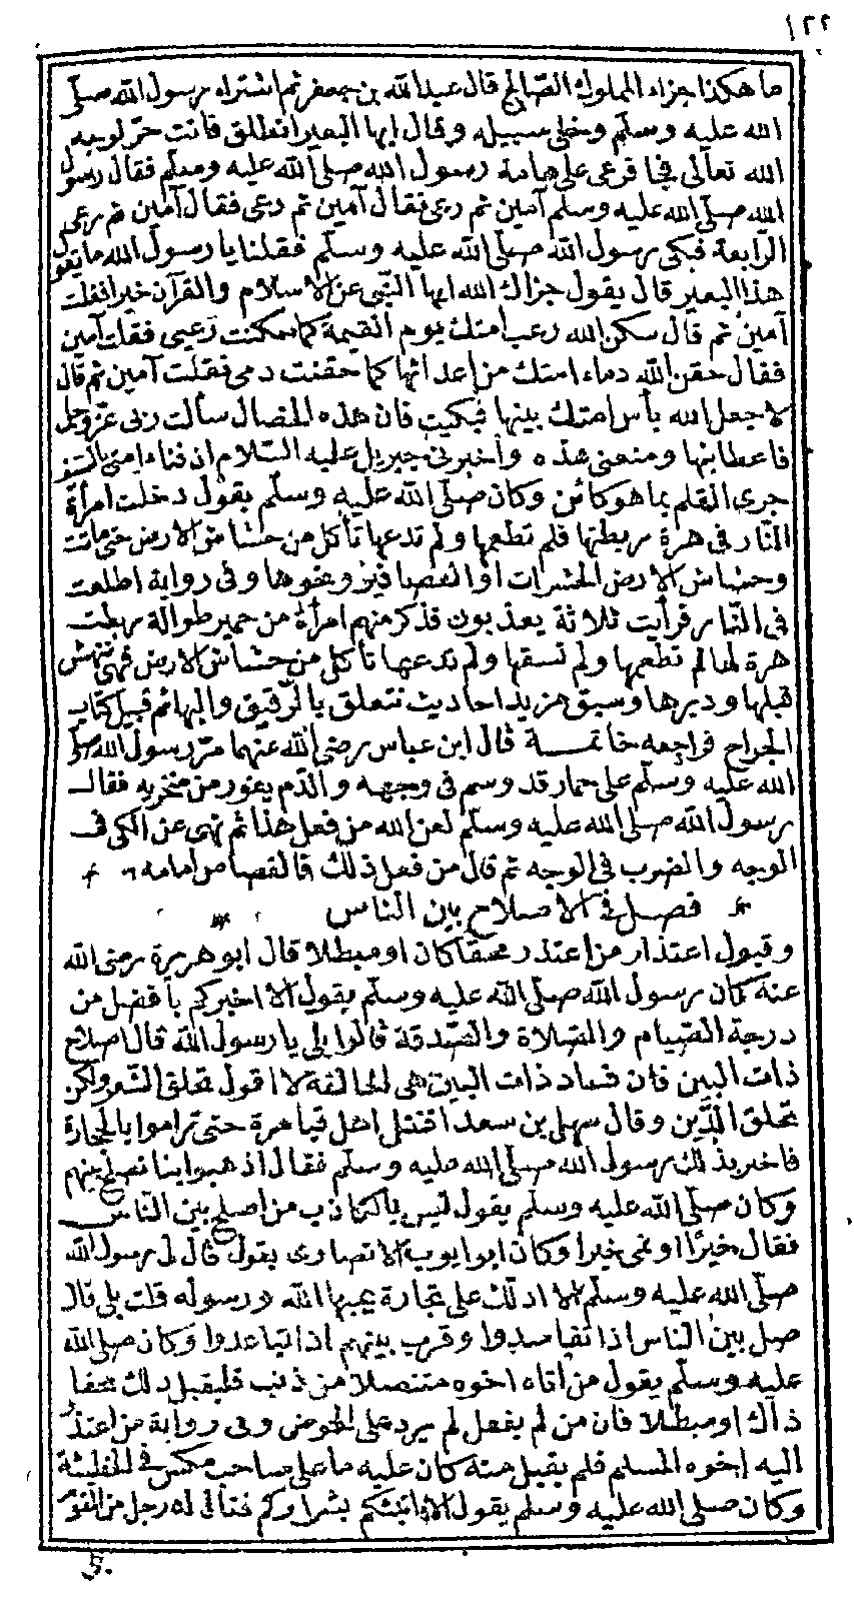 ١٢٢
ما هكذا جزاء المملوك الصالح قال عبد الله بن جعفر ثم اشتراه رسول الله صلى
الله عليه وسلم وخلى سبيله وقال ايها البعير انطلق فانت حر لوجه
الله تعالى فجا فرغى على هامة رسول الله صلى الله عليه وسلم فقال رسول
الله صلى الله عليه وسلم آمين ثم رغى فقال آمين ثم رغى فقال آمين ثم رغى
الرابعة فبكى رسول الله صلى الله عليه وسلم فقلنا يا رسول الله ما يقول
هذا البعير قال يقول جزاك الله ايها النبي عن الاسلام والقرآن خيرا فقلت
آمين ثم قال سكن الله رعب امتك يوم القيمة كما سكنت رعبي فقلت آمين
فقال حقن الله دماء امتك من اعدائها كما حقنت دمى فقلت آمين ثم قال
لا جعل الله بأس امتك بينها فبكيت فان هذه الخصال سألت ربى عز وجل
فاعطانيها ومنعنى هذه وأخبرنى جبريل عليه السلام ان فناء امتى بالسيف
جرى القلم بما هو كائن وكان صلى الله عليه وسلم يقول دخلت امرأة
النار فى هرة ربطتها فلم تطعمها ولم تدعها تأكل من خشاش الارض حتى ماتت
وخشاش الارض الحشرات او العصافير ونحوها وفى رواية اطلعت
فى النار فرأيت ثلاثة يعذبون فذكر منهم امرأة من حمير طوالة ربطت
هرة لها لم تطعمها ولم تسقها ولم تدعها تأكل من خشاش الارض فهى تنهش
قبلها ودبرها وسبق مزيد احاديث تتعلق بالرقيق والبهائم قبيل كتاب
الجراح فراجعه خاتمة قال ابن عباس رضى الله عنهما مر رسول الله صلى
الله عليه وسلم على حمار قد وسم فى وجهه والدم يفور من منخريه فقال
رسول الله صلى الله عليه وسلم لعن الله من فعل هذا ثم نهى عن الكى فى
الوجه والضرب فى الوجه ثم قال من فعل ذلك فالقصاص امامه
فصل فى الاصلاح بين الناس
وقبول اعتذار من اعتذر محقا كان او مبطلا قال ابو هريرة رضى الله
عنه كان رسول الله صلى الله عليه وسلم يقول الا اخبركم بأفضل من
درجة الصيام والصلاة والصدقة قالوا بلى يا رسول الله قال اصلاح
ذات البين فان فساد ذات البين هى الحالقة لا اقول تحلق الشعر ولكن
تحلق الدين وقال سهل بن سعد اقتتل اهل قبا مرة حتى تراموا بالحجارة
فاخبر بذلك رسول الله صلى الله عليه وسلم فقال اذهبوا بنا نصلح بينهم
وكان صلى الله عليه وسلم يقول ليس بالكذاب من اصلح بين الناس
فقال خيرا او نمى خيرا وكان ابو ايوب الانصارى يقول قال لى رسول الله
صلى الله عليه وسلم الا ادلك على تجارة يحبها الله ورسوله قلت بلى قال
صل بين الناس اذا تفاسدوا وقرب بينهم اذا تباعدوا وكان صلى الله
عليه وسلم يقول من اتاه اخوه متنصلا من ذنب فليقبل ذلك محقا
ذاك او مبطلا فان من لم يفعل لم يرد على الحوض وفى رواية من اعتذر
اليه اخوه المسلم فلم يقبل منه كان عليه ما على صاحب مكس فى الخطيئة
وكان صلى الله عليه وسلم يقول الا انبئكم بشراركم فقال له رجل من القوم